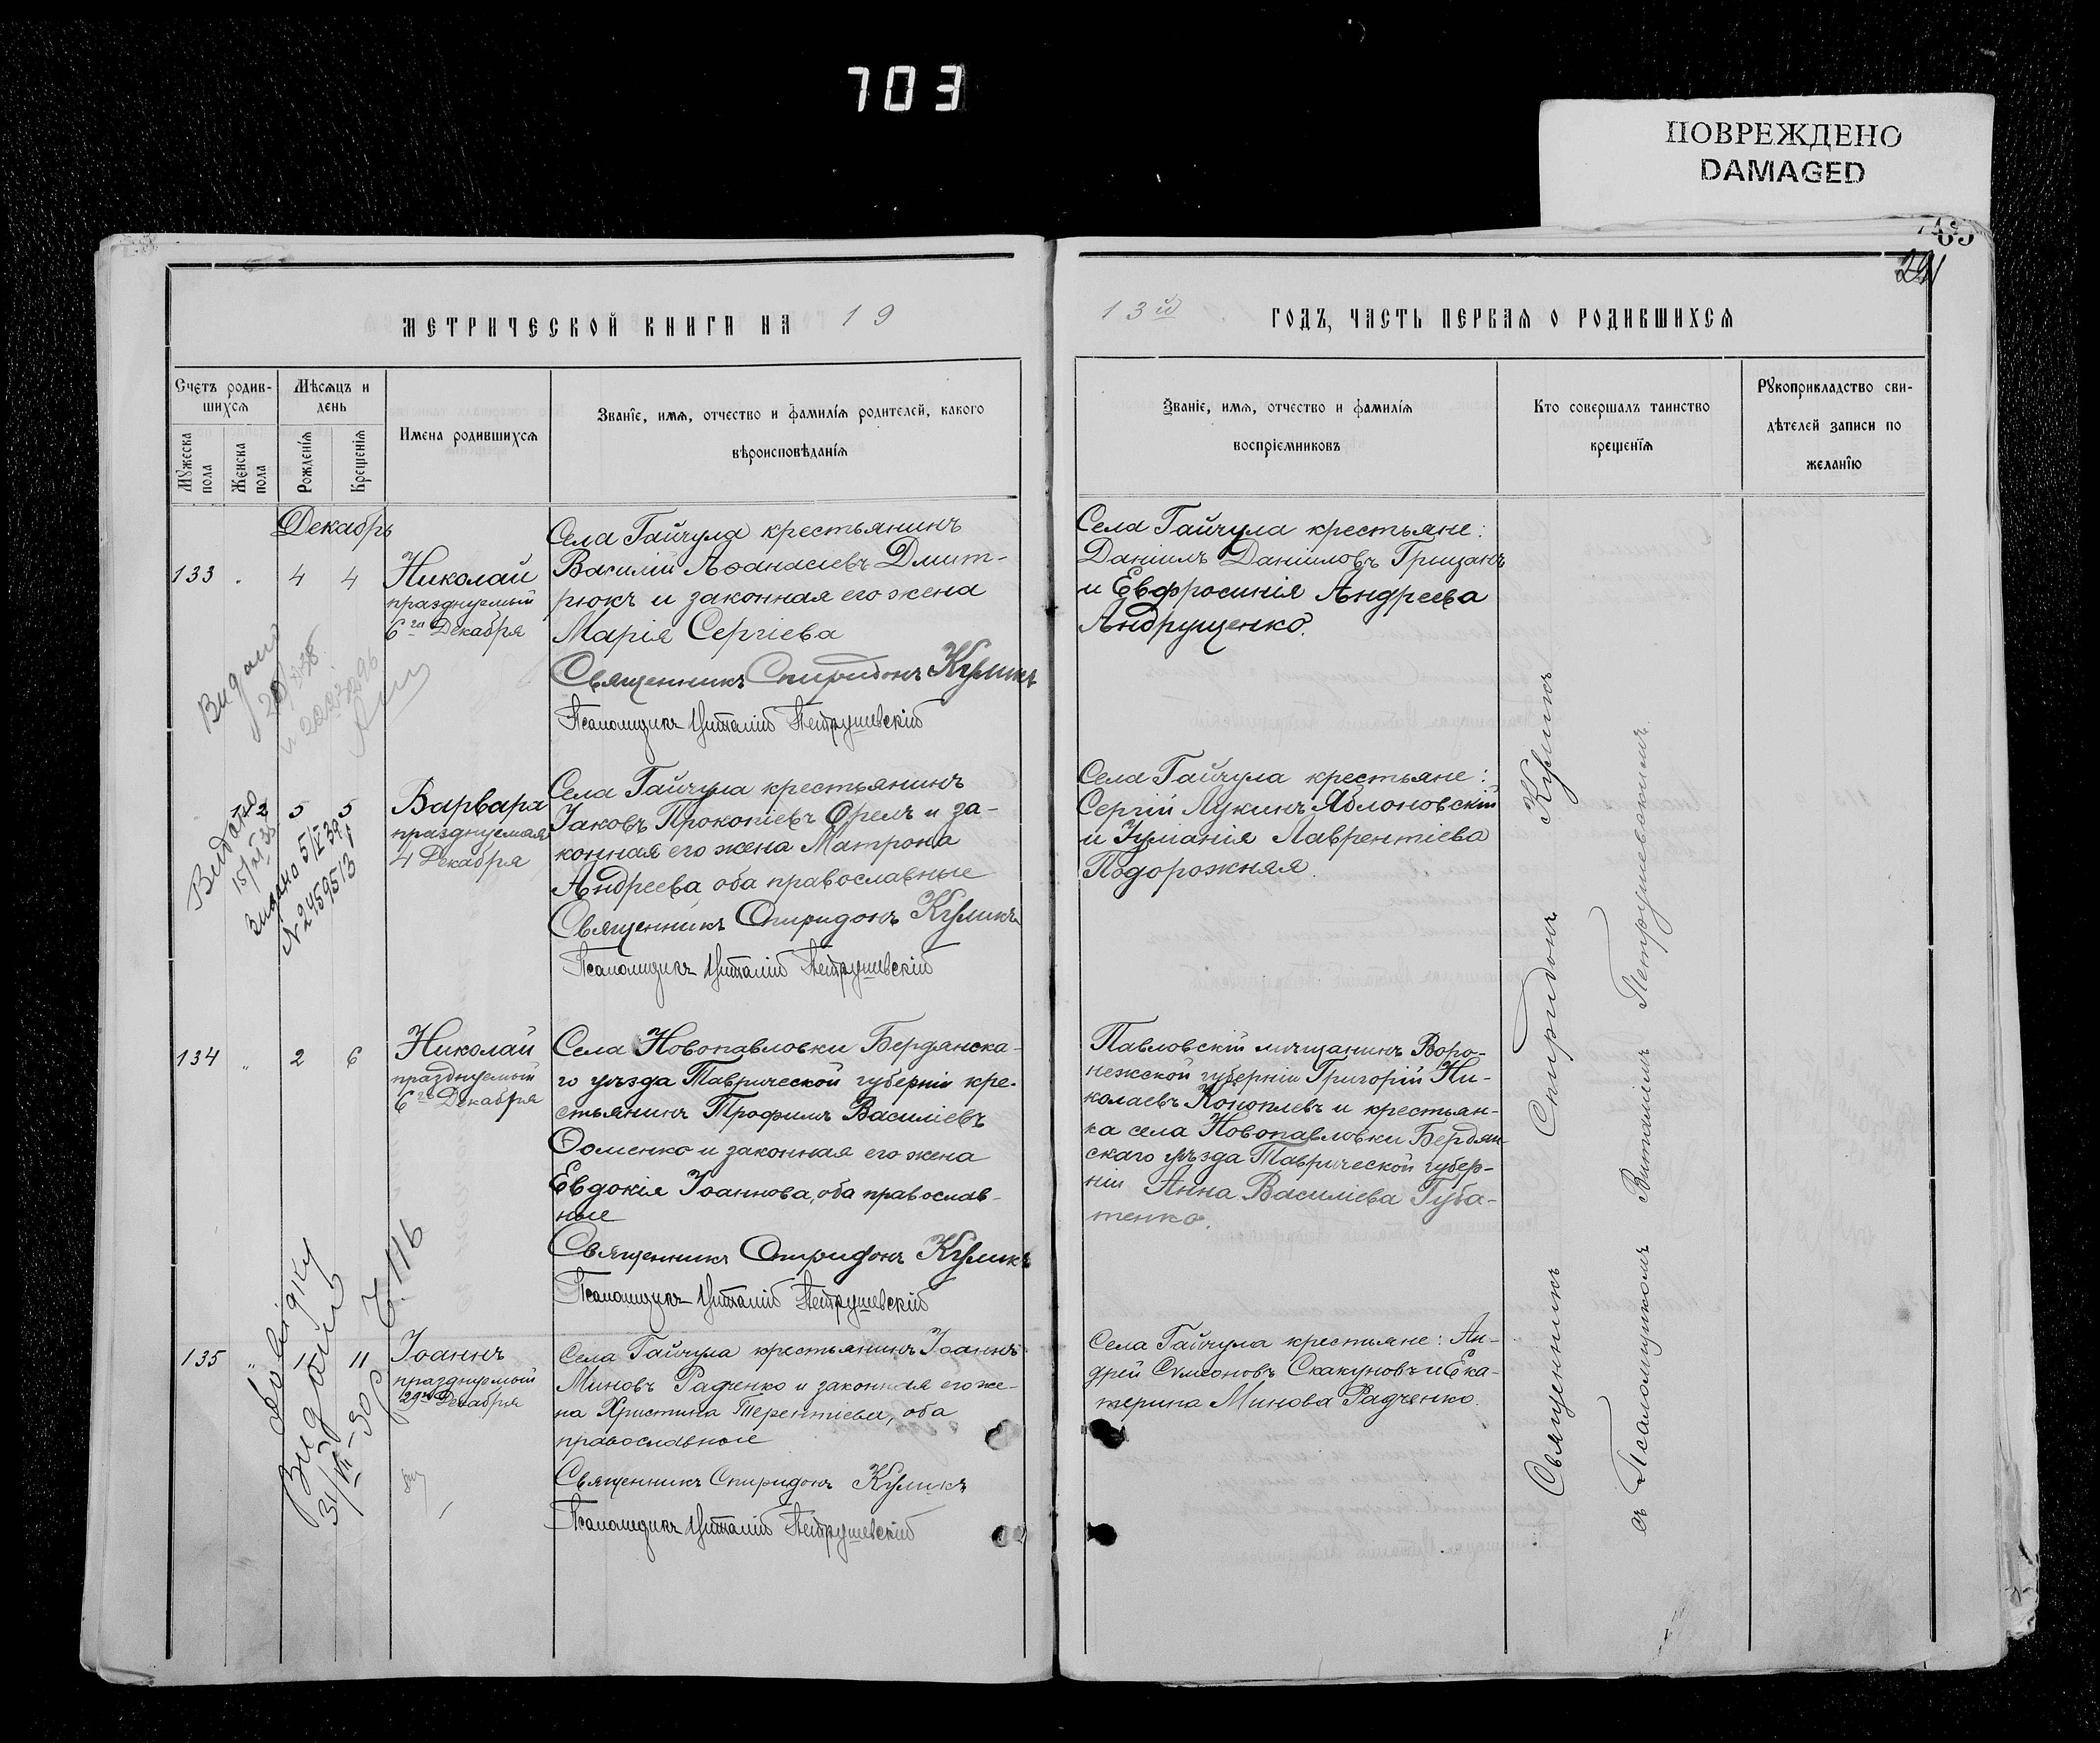 703
ПОВРЕЖДЕНО
DAMAGED
291
МЕТРИЧЕСКОЙ КНИГИ НА 19
13й ГОДЪ, ЧАСТЬ ПЕРВАЯ О РОДИВШИХСЯ
Счетъ родив-
шихся
Мужеска
пола
Женска
пола
Мѣсяцъ и
день
Рожденія
Крещенія
Имена родившихся
Званіе, имя, отчество и фамилія родителей, какого
вѣроисповѣданія
Званіе, имя, отчество и фамилія
воспріемниковъ
Кто совершалъ таинство
крещенія
Рукоприкладство сви-
дѣтелей записи по
желанію
Декабрь
133 " 4 4
Николай
празднуемый
6го Декабря
Села Гайчула крестьянинъ
Василій Аѳанасіевъ Дмит-
рюкъ и законная его жена
Марія Сергіева
Священникъ Спиридонъ Куликъ
Псаломщикъ Виталій Петрушевскій
Села Гайчула крестьяне:
Даніилъ Даніиловъ Грицанъ
и Евфросинія Андреева
Андрущенко.
Видано
5 5
Варвара
празднуемая
4 Декабря
Села Гайчула крестьянинъ
Іаковъ Прокопіевъ Орелъ и за-
конная его жена Матрона
Андреева оба православные
Священникъ Спиридонъ Куликъ
Псаломщикъ Виталій Петрушевскій
Села Гайчула крестьяне:
Сергій Лукинъ Яблоновскій
и Іуліанія Лаврентіева
Подорожняя.
Видано
Видано 5/IV 39
N 2459513
134 " 2 6
Николай
празднуемый
6го Декабря
Села Новопавловки Бердянска-
го уѣзда Таврической губерніи кре-
стьянинъ Трофимъ Василіевъ
Ѳоменко и законная его жена
Евдокія Іоаннова, оба православ-
ные
Священникъ Спиридонъ Куликъ
Псаломщикъ Виталій Петрушевскій
Павловскій мѣщанинъ Воро-
нежской губерніи Григорій Ни-
колаевъ Коноплевъ и крестьян-
ка села Новопавловки Бердян-
скаго уѣзда Таврической губер-
ніи Анна Василіева Губа-
тенко.
135 " 11
Іоаннъ
празднуемый
29го Декабря
Села Гайчула крестьянинъ Іоаннъ
Миновъ Радченко и законная его же-
на Христина Терентіева, оба
православные
Священникъ Спиридонъ Куликъ
Псаломщикъ Виталій Петрушевскій
Села Гайчула крестьяне: Ан-
дрей Симеоновъ Скакуновъ и Ека-
терина Минова Радченко.
довідку
Видано
Священникъ Спиридонъ Куликъ
съ Псаломщикомъ Виталіемъ Петрушевскимъ.